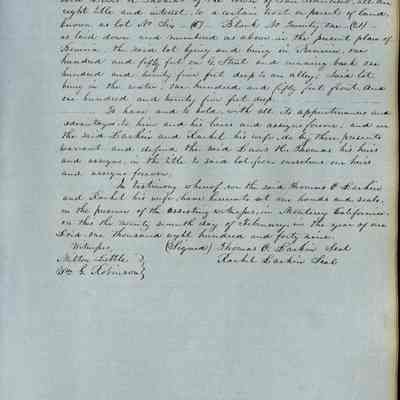 right title and interest, to a certain tract or parcel of land,
known as lot No Six – (6) – Block No Twenty one (21) –
as laid down and numbered as above in the present plan of
Benicia, the said lot lying and being in Benicia, one
hundred and fifty feet on Street and running back one
hundred and twenty five feet deep to an alley. Said lot
being in the water, one hundred and fifty feet front. And
one hundred and twenty five feet deep.
To have and to hold, with all its appurtenances and
advantages to him and his heirs and assigns forever, and we
the said Larkin and Rachel his wife, do by these presents
warrant and defend the said Lewis H. Thomas his heirs
and assigns, in the title to said lot from ourselves our heirs
and assigns forever.
In Testimony whereof, we the said Thomas O. Larkin
and Rachel his wife, have hereunto set our hands and seals,
in the presence of the assisting witnesses, in Monterey California
on this the twenty seventh day of February, in the year of our
Lord, one thousand eight hundred and forty nine.
Witnesses, (Signed) Thomas O. Larkin Seal
Milton Little } Rachel Larkin Seal
Wm G Robinson }